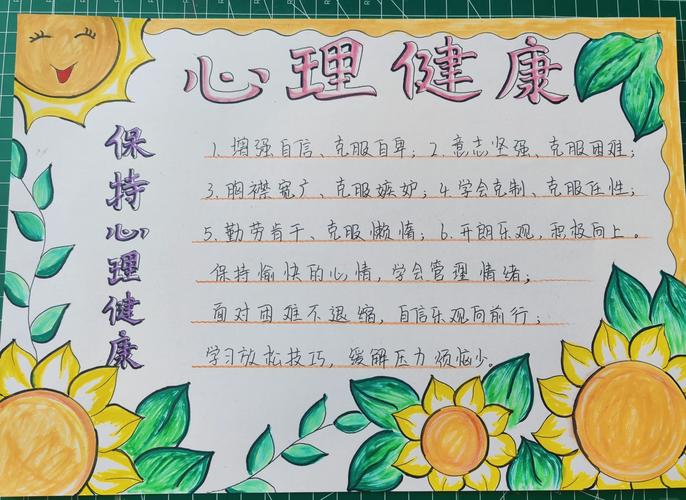 心理健康
保持心理健康
1. 增强自信、克服自卑；2. 意志坚强、克服困难；
3. 胸襟宽广、克服嫉妒；4. 学会克制、克服任性；
5. 勤劳肯干、克服懒惰；6. 开朗乐观，积极向上。
保持愉快的心情，学会管理情绪；
面对困难不退缩，自信乐观向前行；
学习放松技巧，缓解压力烦恼少。